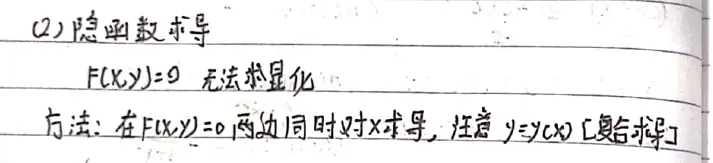 (2) 隐函数求导
F(x,y)=0 无法求显化
方法: 在F(x,y)=0 两边同时对x求导, 注意 y=y(x) [复合求导]